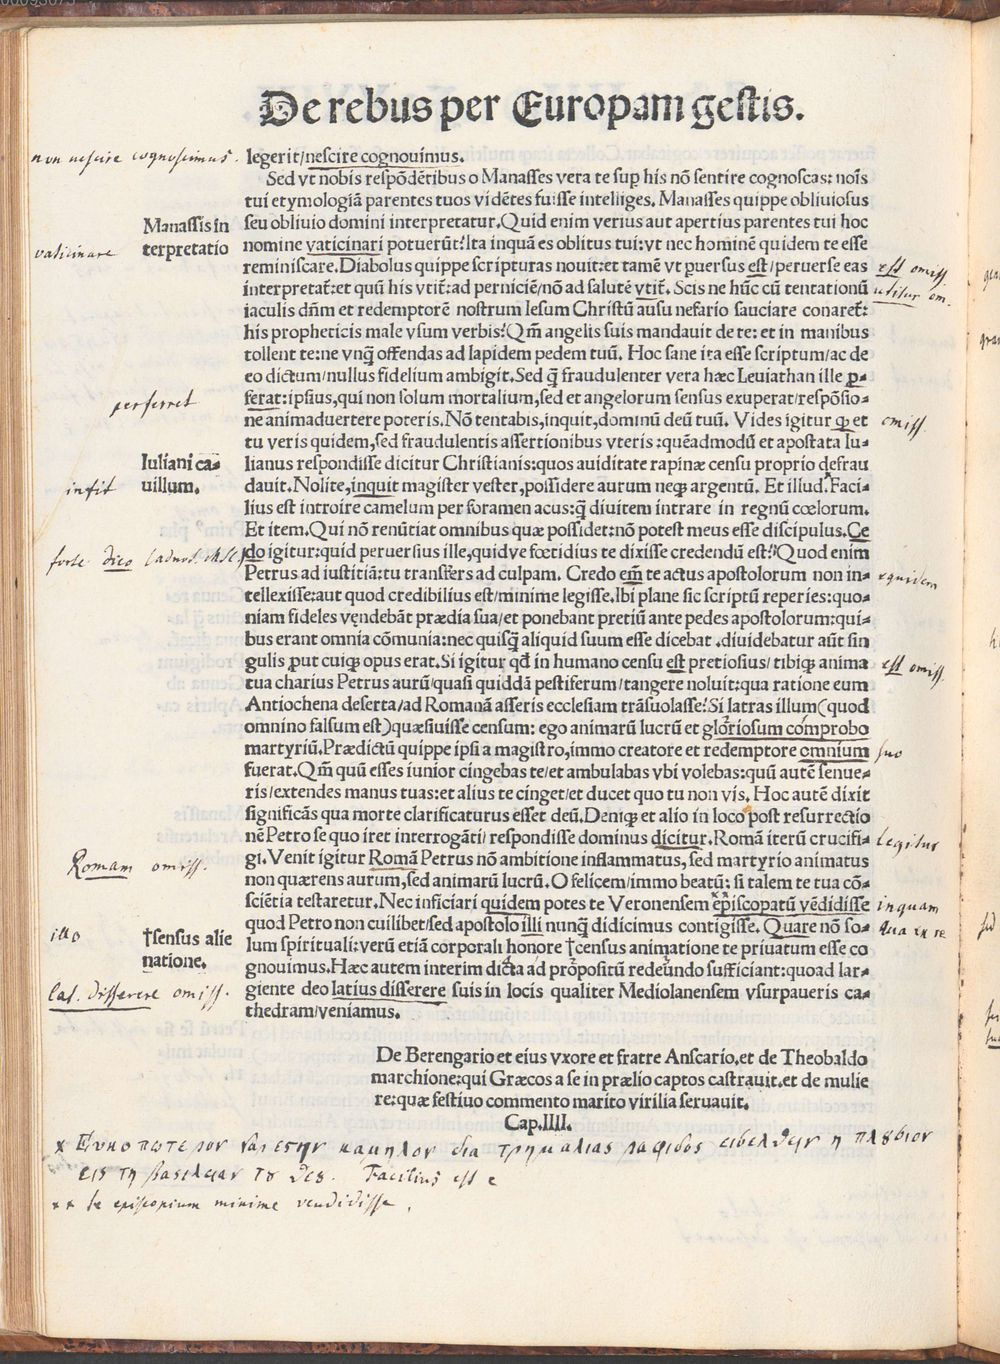 De rebus per Europam gestis.
non nescire cognoscimus.
legerit/nescire cognouimus.
Sed vt nobis respõdẽtibus o Manasses vera te sup his nõ sentire cognoscas: noĩs
tui etymologiã parentes tuos vidẽtes fuisse intelliges. Manasses quippe obliuiosus
Manassis in
terpretatio
vaticinare
seu obliuio domini interpretatur. Quid enim verius aut apertius parentes tui hoc
nomine vaticinari potuerũt? Ita inquã es oblitus tui: vt nec hominẽ quidem te esse
reminiscare. Diabolus quippe scripturas nouit: et tamẽ vt puersus est/peruerse eas
est omiss.
interpretat̃: et quũ his vtit̃: ad perniciẽ/nõ ad salutẽ vtit̃. Scis ne hũc cũ tentationũ
utitur om.
iaculis dñm et redemptorẽ nostrum Iesum Christũ ausu nefario sauciare conaret̃:
his propheticis male vsum verbis? Qm̃ angelis suis mandauit de te: et in manibus
tollent te: ne vnq̃ offendas ad lapidem pedem tuũ. Hoc sane ita esse scriptum/ac de
eo dictum/nullus fidelium ambigit. Sed q̃ fraudulenter vera hæc Leuiathan ille p-
perferret
ferat: ipsius, qui non solum mortalium, sed et angelorum sensus exuperat/respõsio-
ne animaduertere poteris. Nõ tentabis, inquit, dominũ deũ tuũ. Vides igitur qp et
omiss.
tu veris quidem, sed fraudulentis assertionibus vteris: quẽadmodũ et apostata Iu-
Iuliani ca-
uillum.
infit
lianus respondisse dicitur Christianis: quos auiditate rapinæ censu proprio defrau
dauit. Nolite, inquit magister vester, possidere aurum neq; argentũ. Et illud. Faci-
lius est introire camelum per foramen acus: q̃ diuitem intrare in regnũ cœlorum.
Et item. Qui nõ renũtiat omnibus quæ possidet: nõ potest meus esse discipulus. Ce
forte dico
do igitur: quid peruersius ille, quidve fœtidius te dixisse credendũ est? Quod enim
Petrus ad iustitiã: tu transfers ad culpam. Credo em̃ te actus apostolorum non in-
equidem
tellexisse: aut quod credibilius est/minime legisse. Ibi plane sic scriptũ reperies: quo-
niam fideles vendebãt prædia sua/et ponebant pretiũ ante pedes apostolorum: qui-
bus erant omnia cõmunia: nec quisq̃ aliquid suum esse dicebat. diuidebatur aũt sin
gulis put cuiq; opus erat. Si igitur qd̃ in humano censu est pretiosius/tibiq; anima
est omiss.
tua charius Petrus aurũ/quasi quiddã pestiferum/tangere noluit: qua ratione eum
Antiochena deserta/ad Romanã asseris ecclesiam trãsuolasse? Si latras illum (quod
omnino falsum est) quæsiuisse censum: ego animarũ lucrũ et gloriosum comprobo
martyriũ. Prædictũ quippe ipsi a magistro, immo creatore et redemptore omnium
suo
fuerat. Qm̃ quũ esses iunior cingebas te/et ambulabas vbi volebas: quũ autẽ senue-
ris/extendes manus tuas: et alius te cinget/et ducet quo tu non vis. Hoc autẽ dixit
significãs qua morte clarificaturus esset deũ. Deniq; et alio in loco post resurrectio
nẽ Petro se quo iret interrogãti/respondisse dominus dicitur. Romã iterũ crucifi-
legitur
Romam omiss.
gi. Venit igitur Romã Petrus nõ ambitione inflammatus, sed martyrio animatus
non quærens aurum, sed animarũ lucrũ. O felicem/immo beatũ: si talem te tua cõ-
sciẽtia testaretur. Nec inficiari quidem potes te Veronensem episcopatũ vẽdidisse
inquam
illo
quod Petro non cuilibet/sed apostolo illi nunq̃ didicimus contigisse. Quare nõ so-
qua in re
†sensus alie
natione.
lum spirituali: verũ etiã corporali honore †census animatione te priuatum esse co
gnouimus. Hæc autem interim dicta ad propositũ redeundo sufficiant: quoad lar-
lat. disserere omiss.
giente deo latius disserere suis in locis qualiter Mediolanensem vsurpaueris ca-
thedram/veniamus.
De Berengario et eius vxore et fratre Anscario. et de Theobaldo
marchione: qui Græcos a se in prælio captos castrauit. et de mulie
re: quæ festiuo commento marito virilia seruauit.
Cap. IIII.
x Ευκοπωτερον γαρ εστιν καμηλον δια τρυμαλιας ραφιδος εισελθειν η πλουσιον
εις τη βασιλειαν του θεου. Facilius est e
x x te episcopium minime vendidisse.